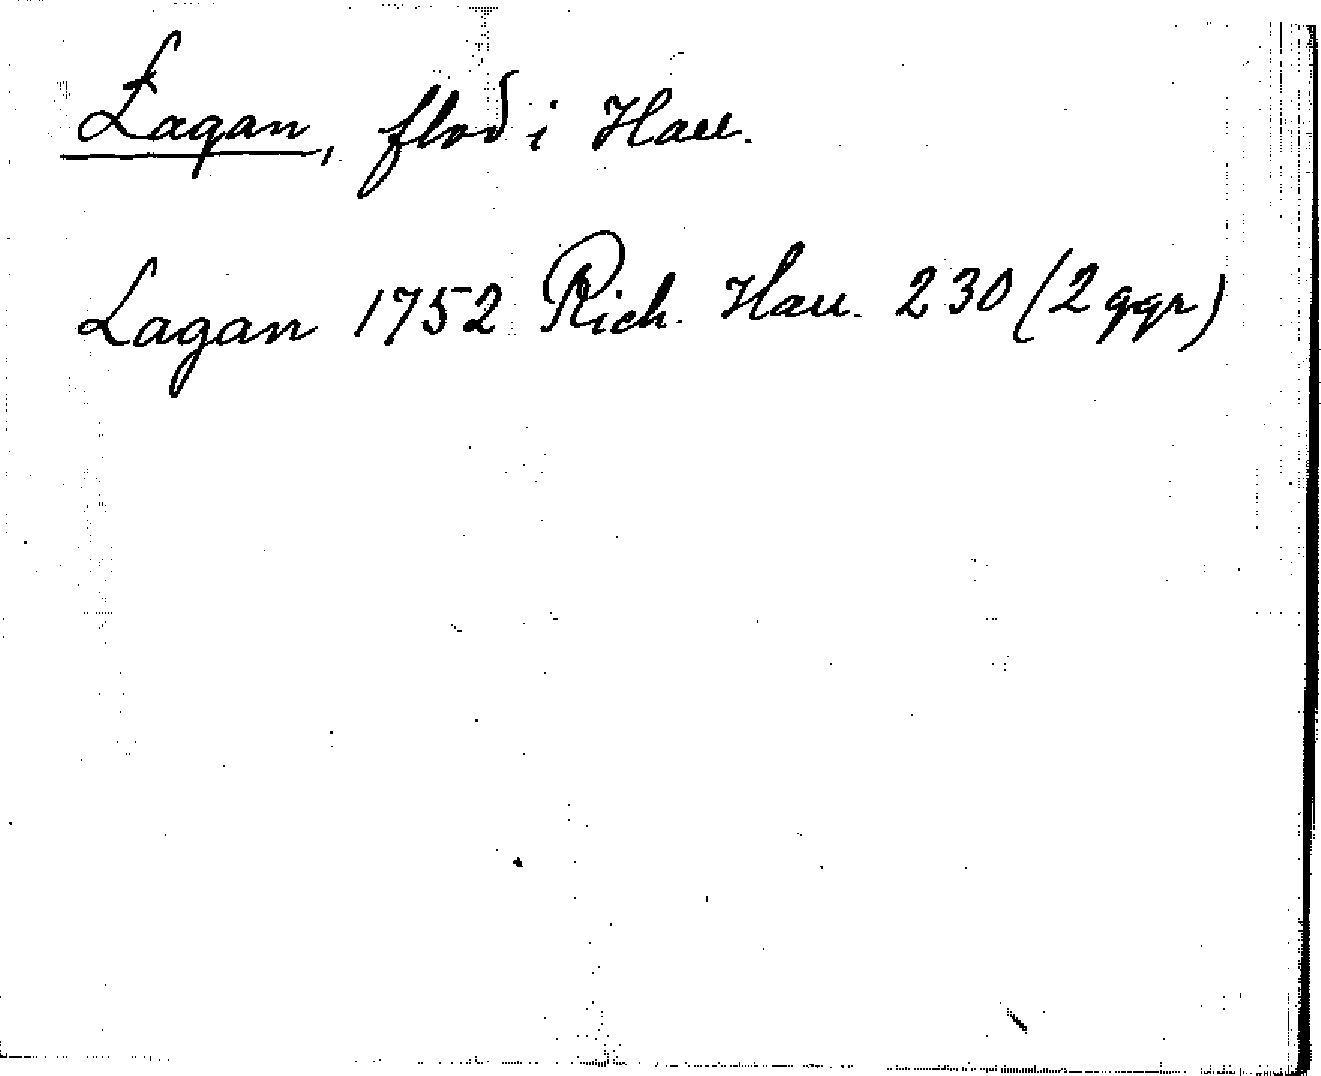 Lagan, flod i Hall.
Lagan 1752 Rich. Hall. 230 (2 ggr)